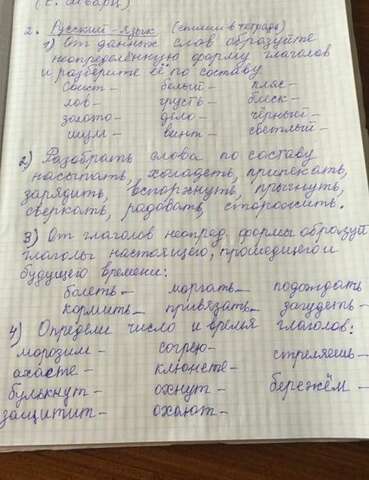 (Е. Шварц)
2. Русский язык (спиши в тетрадь)
1) От данных слов образуйте
неопределённую форму глаголов
и разберите её по составу
Свист - белый - пляс -
лов - грусть - блеск -
золото - дело - чёрный -
шум - винт - светлый -
2) Разобрать слова по составу
насыпать, холодеть, припекать,
зарядить, вспорхнуть, прыгнуть,
сверкать, радовать, сторожить.
3) От глаголов неопред. формы образуй
глаголы настоящего, прошедшего и
будущего времени:
болеть - моргать - подождать
кормить - привязать - загудеть -
4) Определи число и время глаголов:
морозим - согрею - стреляешь -
ахаете - клюнете -
булькнут - охнут - бережём -
защитит - охают -